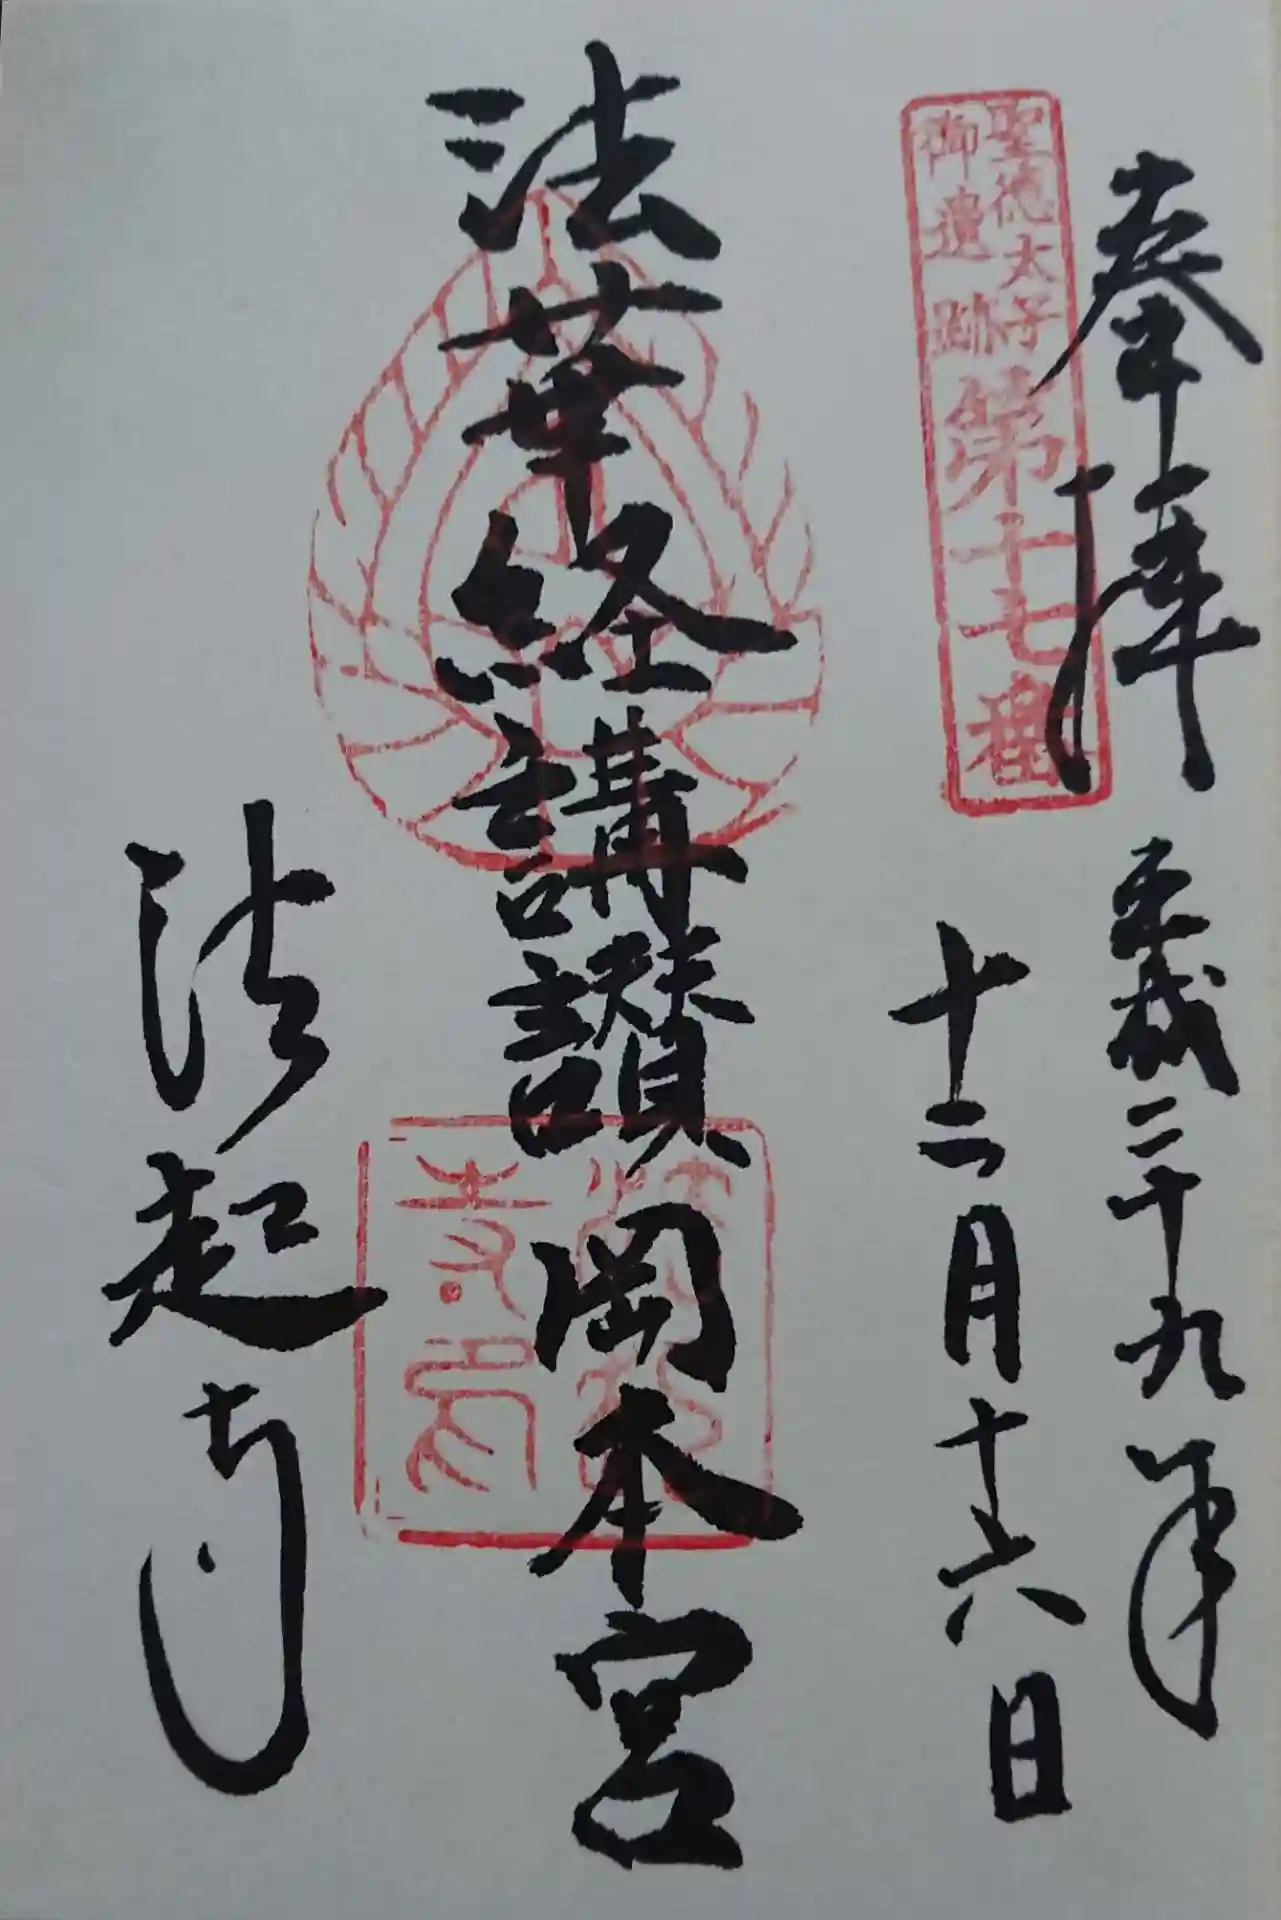 奉拝
平成二十九年
十二月十六日
聖徳太子
御遺跡
第十七番
法華経講讃岡本宮
法起寺